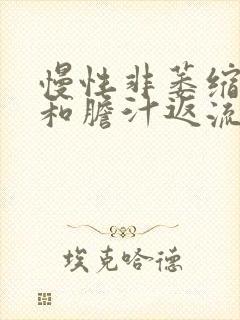 慢性非萎缩
和胆汁返流
埃克哈德